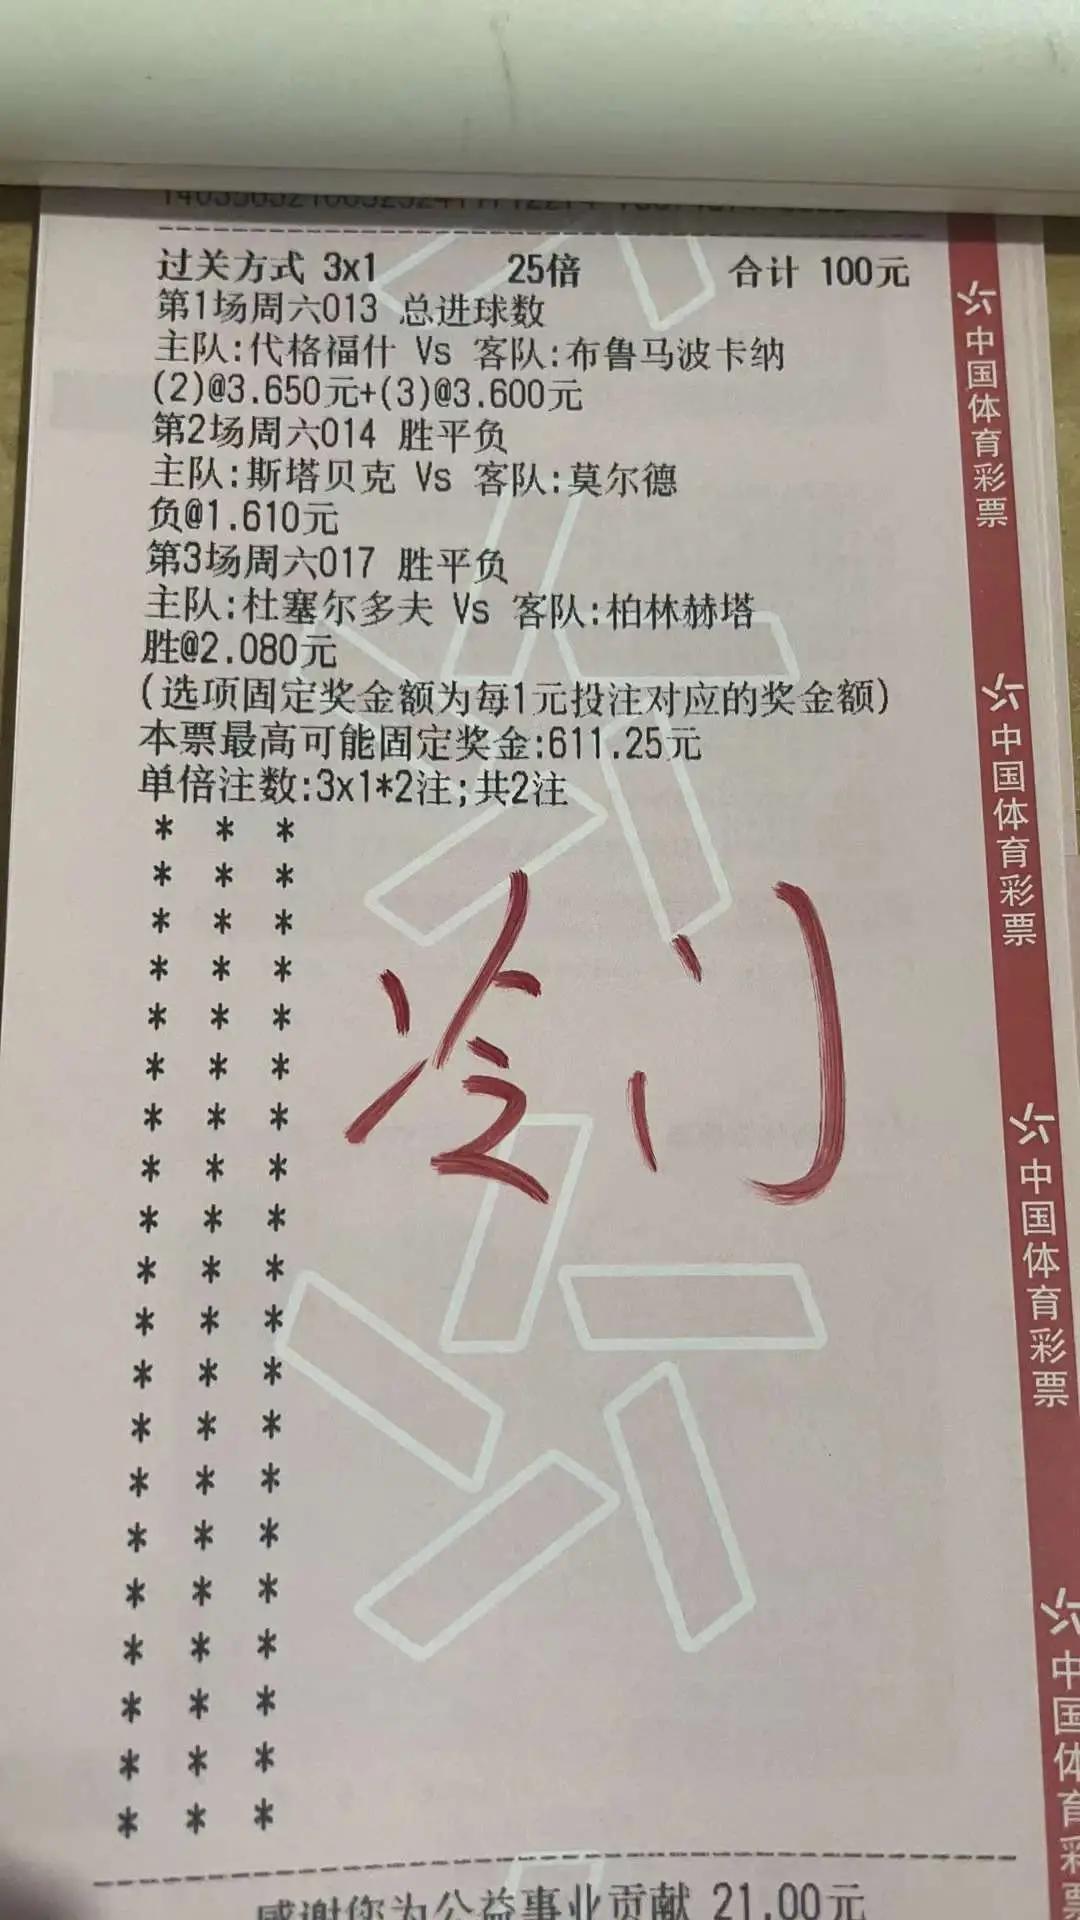 过关方式 3x1 25倍 合计 100元
第1场周六013 总进球数
主队:代格福什 Vs 客队:布鲁马波卡纳
(2)@3.650元+(3)@3.600元
第2场周六014 胜平负
主队:斯塔贝克 Vs 客队:莫尔德
负@1.610元
第3场周六017 胜平负
主队:杜塞尔多夫 Vs 客队:柏林赫塔
胜@2.080元
(选项固定奖金额为每1元投注对应的奖金额)
本票最高可能固定奖金:611.25元
单倍注数:3x1*2注;共2注
* * *
* * *
* * *
* * *
* * *
* * *
* * *
* * *
* * *
* * *
* * *
* * *
* * *
* * *
* * *
* * *
* * *
* * *
* * *
* * *
冷门
感谢您为公益事业贡献 21.00元
中国体育彩票
中国体育彩票
中国体育彩票
中国体育彩票